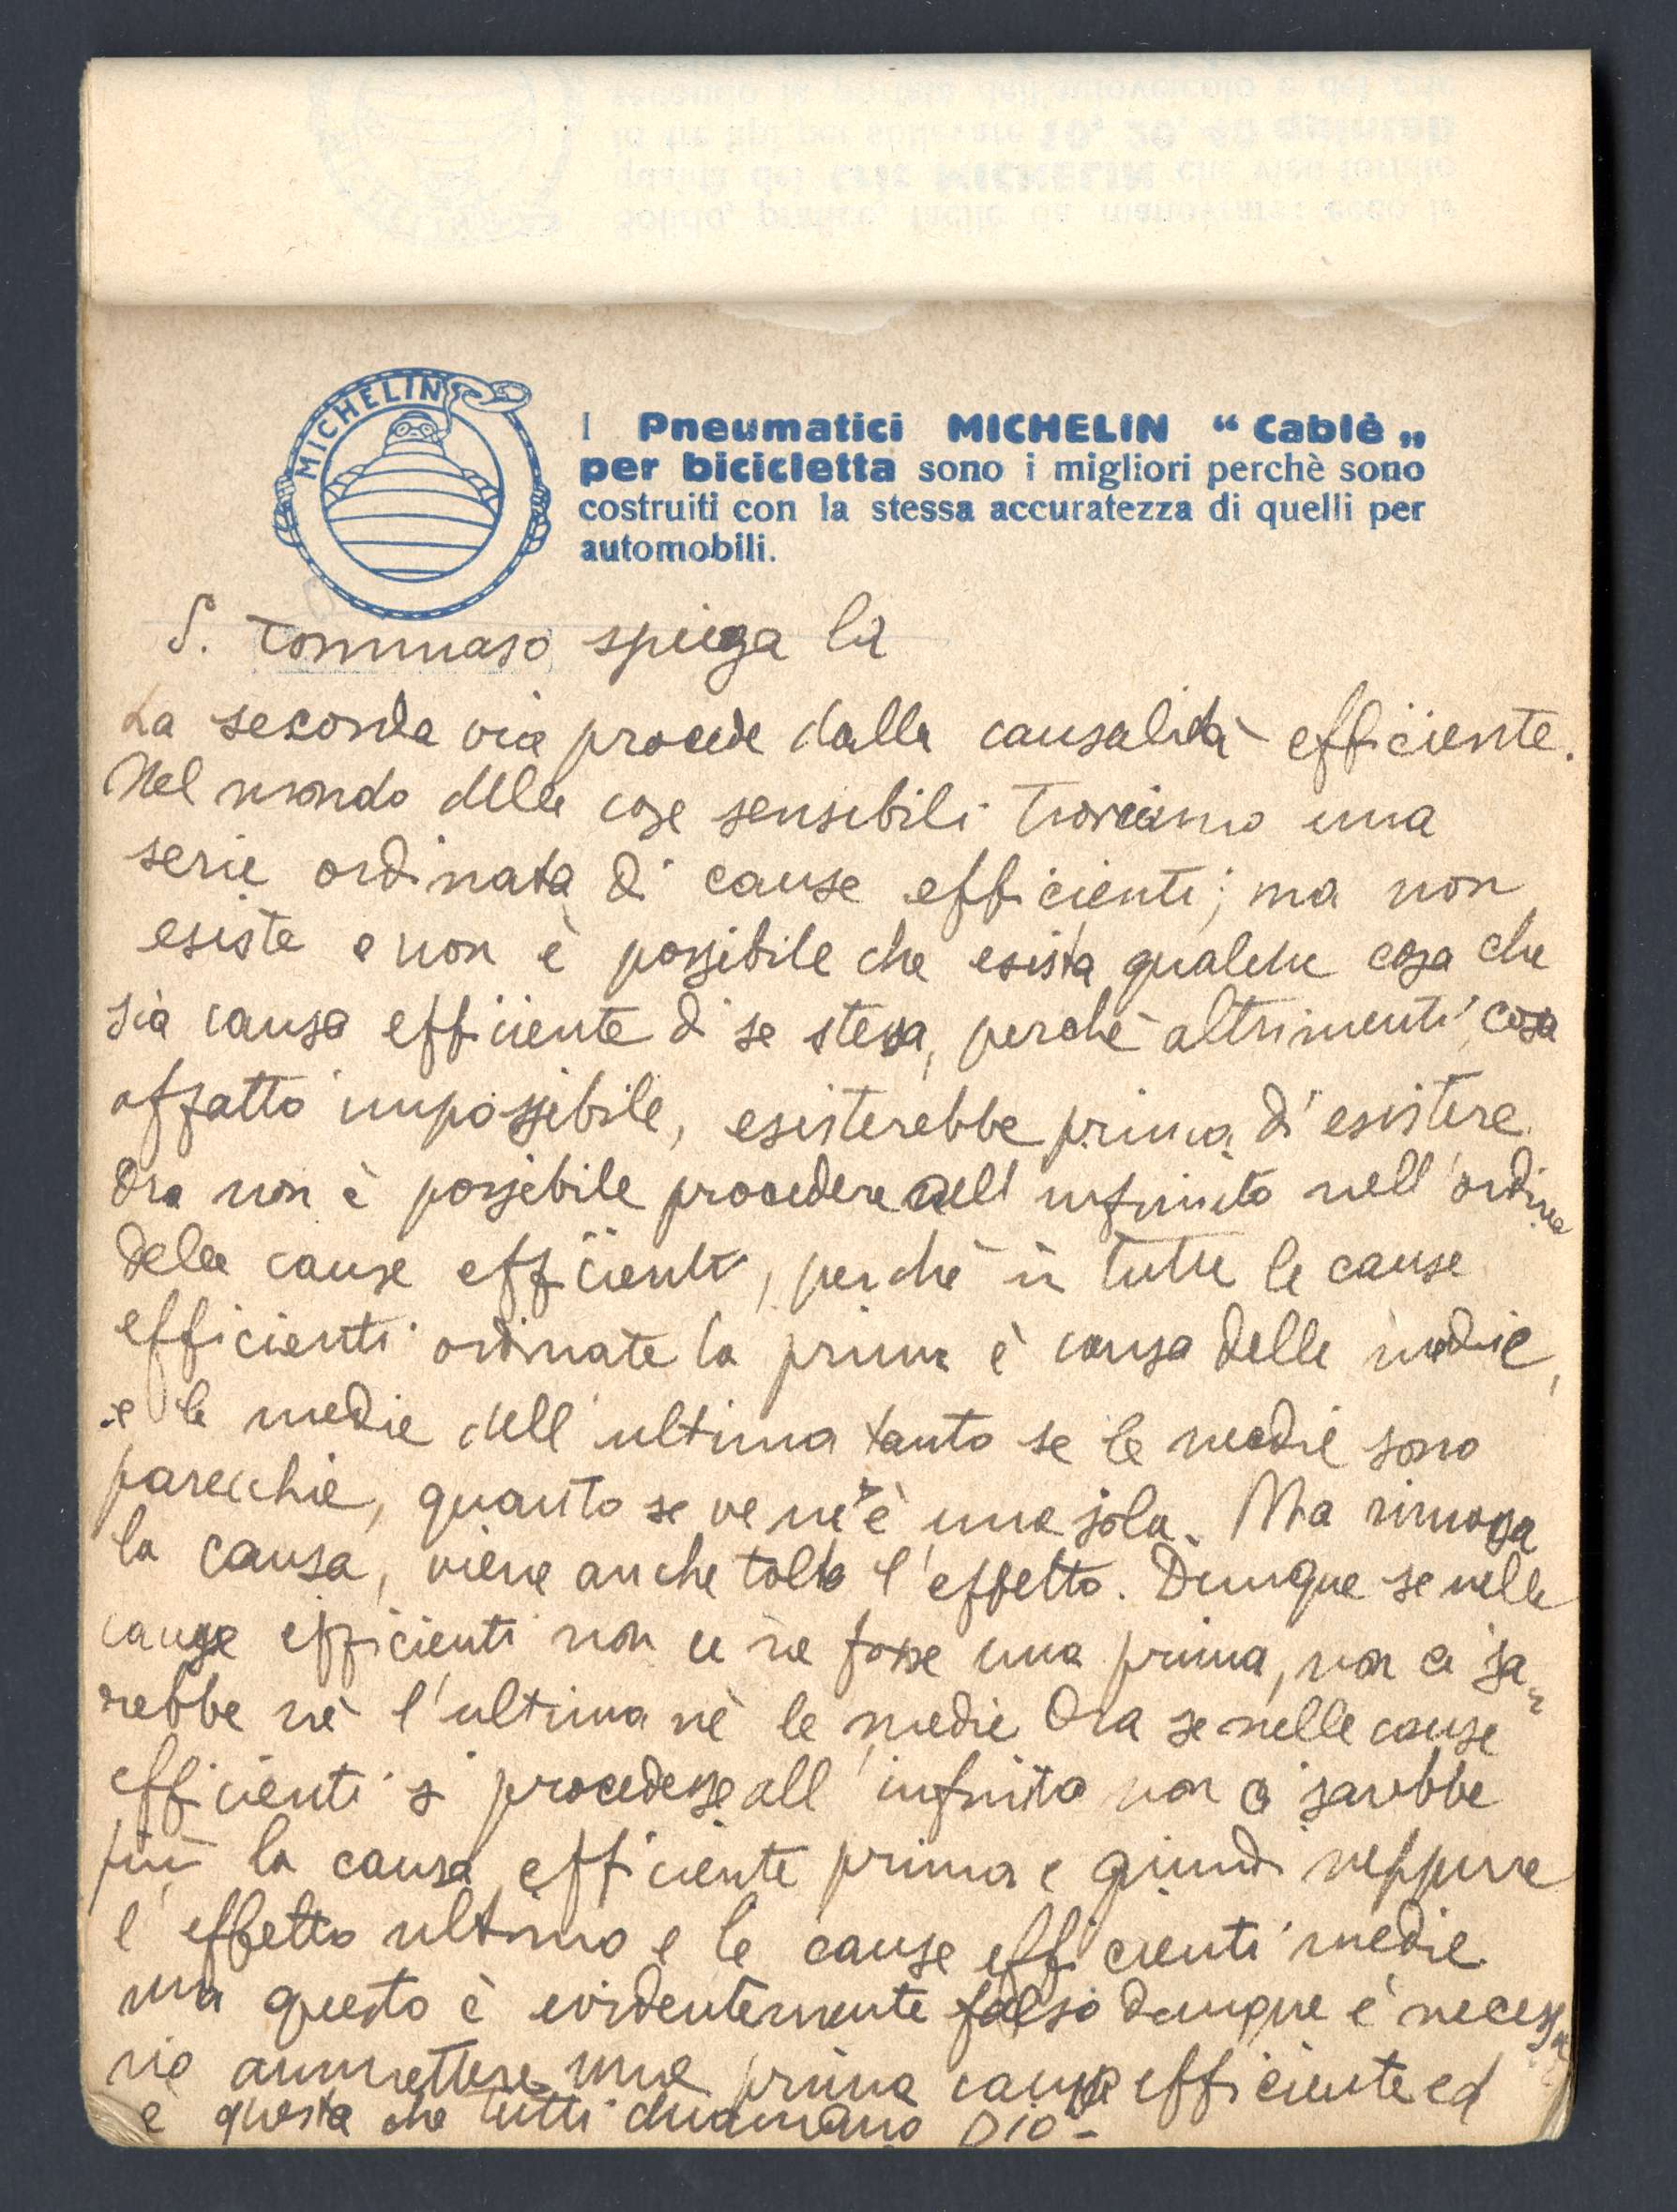 MICHELIN
I Pneumatici MICHELIN “Cablè„
per bicicletta sono i migliori perchè sono
costruiti con la stessa accuratezza di quelli per
automobili.
S. Tommaso spiega la
La seconda via procede dalla causalità efficiente.
Nel mondo delle cose sensibili troviamo una
serie ordinata di cause efficienti; ma non
esiste e non è possibile che esista qualche cosa che
sia causa efficiente di se stessa, perchè altrimenti, cosa
affatto impossibile, esisterebbe prima di esistere.
Ora non è possibile procedere all'infinito nell'ordine
delle cause efficienti, perchè in tutte le cause
efficienti ordinate la prima è causa delle medie,
e le medie dell'ultima tanto se le medie sono
parecchie, quanto se ve n'è una sola. Ma rimossa
la causa, viene anche tolto l'effetto. Dunque se nelle
cause efficienti non ce ne fosse una prima, non ci sa-
rebbe nè l'ultima nè le medie Ora se nelle cause
efficienti si procedesse all'infinito non ci sarebbe
più la causa efficiente prima e quindi neppure
l'effetto ultimo e le cause efficienti medie.
ma questo è evidentemente falso dunque è necessa
rio ammettere una prima causa efficiente ed
è questa che tutti chiamano Dio-